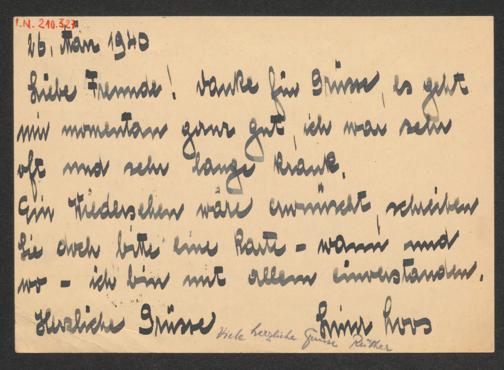 I.N. 210.327
26. März 1940
Liebe Freunde! Danke für Grüsse, es geht
mir momentan ganz gut, ich war sehr
oft und sehr lange krank.
Ein Wiedersehen wäre erwünscht, schreiben
Sie doch bitte eine Karte – wann und
wo – ich bin mit allem einverstanden.
Herzliche Grüsse Lina Loos
Viele herzliche Grüsse